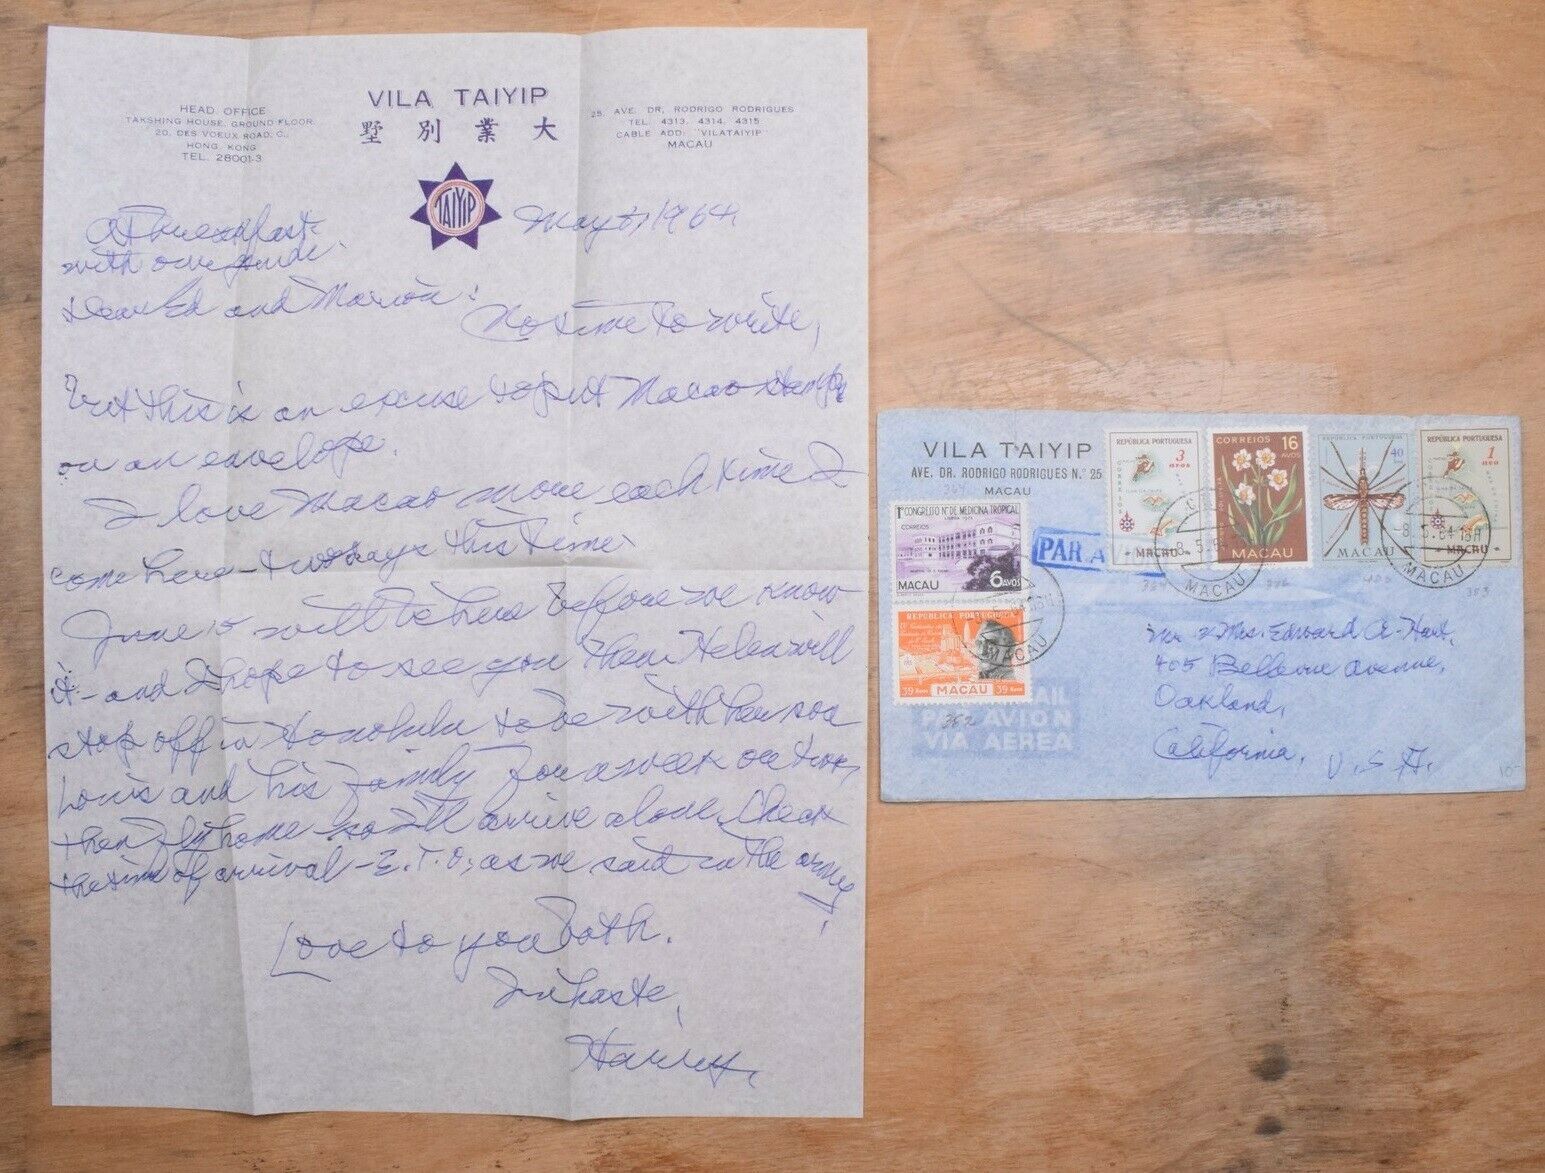 HEAD OFFICE
TAKSHING HOUSE, GROUND FLOOR.
20, DES VOEUX ROAD, C.,
HONG KONG
TEL. 28001-3
VILA TAIYIP
墅 別 業 大
TAIYIP
25, AVE. DR. RODRIGO RODRIGUES
TEL. 4313, 4314, 4315
CABLE ADD: "VILATAIYIP"
MACAU
At breakfast
with our guide.
May 1964
Dear Ed and Marion:
No time to write,
but this is an excuse to put Macao stamps
on an envelope.
I love Macao more each time I
come here - two days this time
June 15 will be here before we know
it - and I hope to see you then. Helen will
stop off in Honolulu to be with her son
Louis and his family for a week or two,
then fly home - so I'll arrive alone. Check
the time of arrival - E.T.O, as we said in the army!
Love to you both.
In haste,
Harry.
VILA TAIYIP
AVE. DR. RODRIGO RODRIGUES N.º 25
MACAU
REPÚBLICA PORTUGUESA
3
avos
CORREIOS
MACAU
CORREIOS 16
AVOS
MACAU
REPÚBLICA PORTUGUESA
40
MACAU
REPÚBLICA PORTUGUESA
1
avo
MACAU
8.5.64
MACAU
8.5.64 16H
MACAU
1º CONGRESSO Nº DE MEDICINA TROPICAL
CORREIOS
MACAU 6 AVOS
REPÚBLICA PORTUGUESA
39 Avos MACAU 39 Avos
MACAU
PAR A
PAR AVION
VIA AEREA
352
383
Mr & Mrs. Edward A. Hart,
405 Bellevue Avenue,
Oakland,
California, U.S.A.
10-